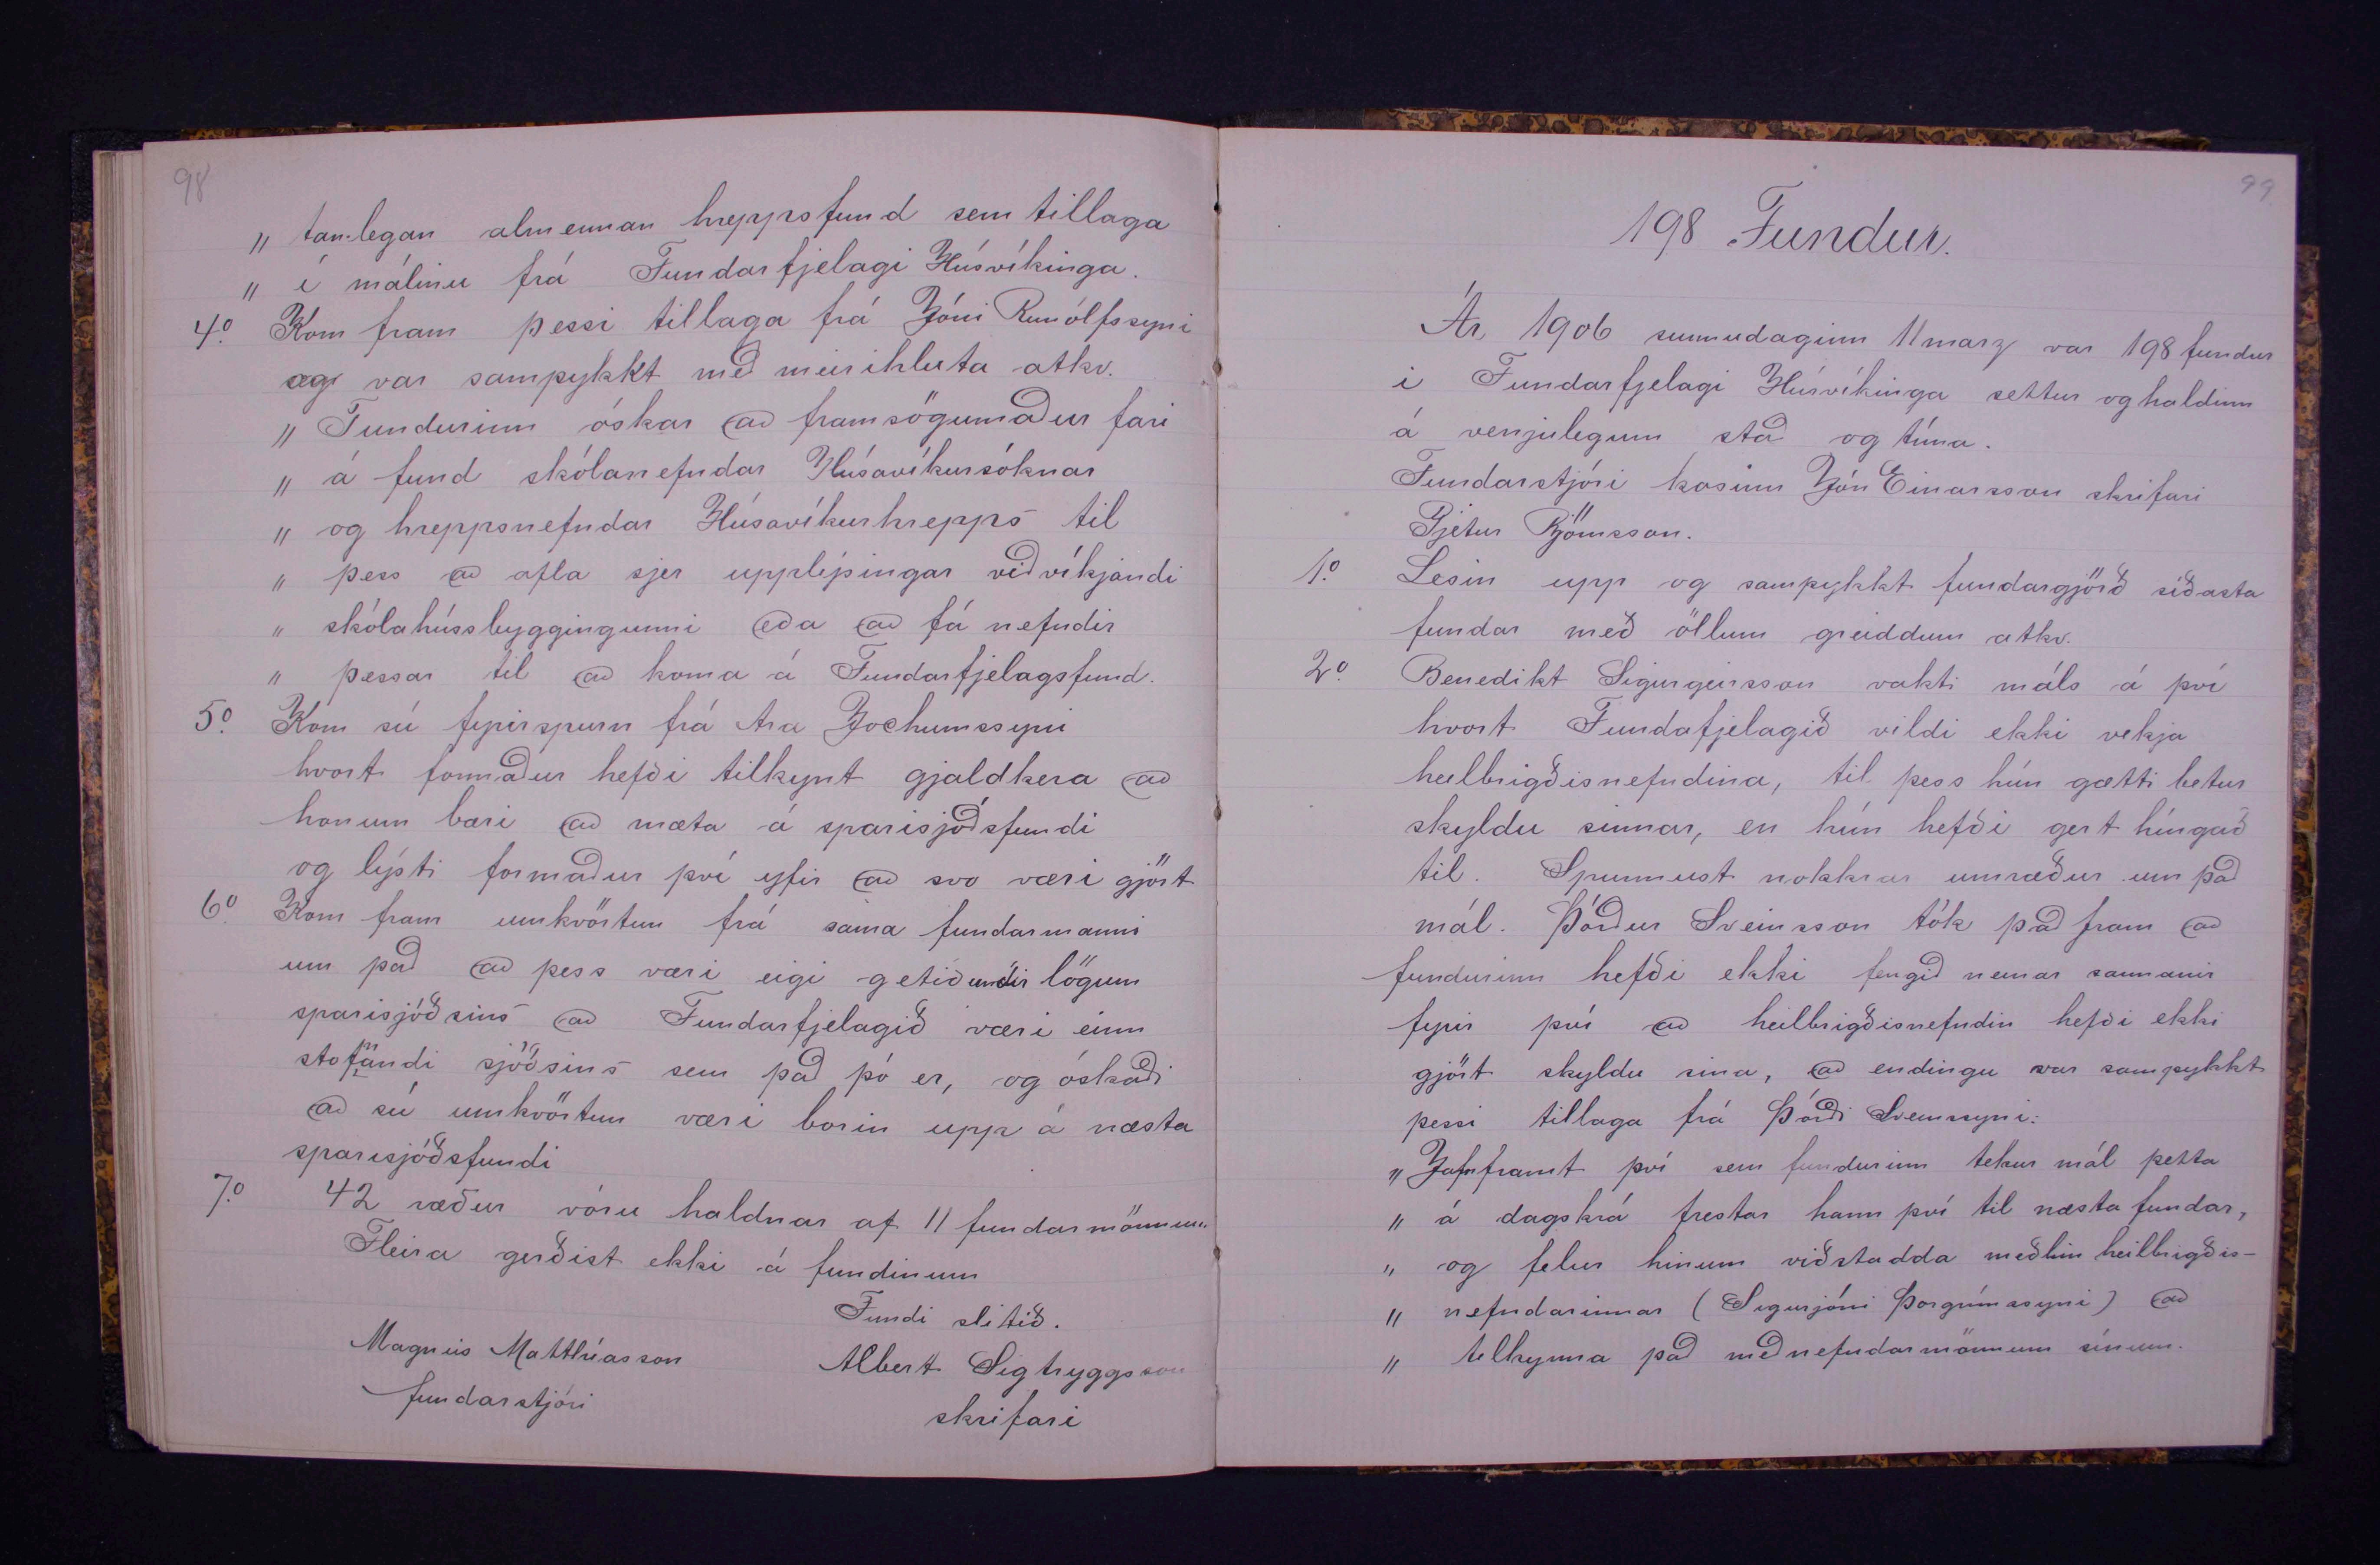 98
„ tanlegan almennan hreppsfund sem tillaga
„ í málinu frá Fundarfjelagi Húsvíkinga.
4.o Kom fram þessi tillaga frá Jóni Runólfssyni
og var samþykkt með meirihluta atkv.
„ Fundurinn óskar að framsögumaður fari
„ á fund skólanefndar Húsavíkursóknar
„ og hreppsnefndar Húsavíkurhrepps til
„ þess að afla sjer upplýsingar viðvíkjandi
„ skólahússbyggingunni eða að fá nefndir
„ þessar til að koma á Fundarfjelagsfund.
5.o Kom sú fyrirspurn frá Ara Jochumssyni
hvort formaður hefði tilkynt gjaldkera að
honum bæri að mæta á sparisjóðsfundi
og lýsti formaður því yfir að svo væri gjört
6.o Kom fram umkvörtun frá sama fundarmanni
um það að þess væri eigi getið undir lögum
sparisjóðsins að Fundarfjelagið væri einn
stofnandi sjóðsins sem það þó er, og óskaði
að sú umkvörtun væri borin upp á næsta
sparisjóðsfundi
7.o 42 ræður vóru haldnar af 11 fundarmönnum
Fleira gerðist ekki á fundinum
Fundi slitið.
Magnús Matthíasson Albert Sigtryggsson
fundarstjóri skrifari
99
198 Fundur.
Ár 1906 sunnudaginn 11 marz var 198 fundur
í Fundarfjelagi Húsvíkinga settur og haldinn
á venjulegum stað og tíma.
Fundarstjóri kosinn Jón Einarsson skrifari
Pjetur Björnsson.
1.o Lesin upp og samþykkt fundargjörð síðasta
fundar með öllum greiddum atkv.
2.o Benedikt Sigurgeirsson vakti máls á því
hvort Fundafjelagið vildi ekki vekja
heilbrigðisnefndina, til þess hún gætti betur
skyldu sinnar, en hún hefði gert híngað
til. Spunnust nokkrar umræður um það
mál. Þórður Sveinsson tók það fram að
fundurinn hefði ekki fengið neinar sannanir
fyrir því að heilbrigðisnefndin hefði ekki
gjört skyldu sina, að endingu var samþykkt
þessi tillaga frá Þórði Sveinssyni:
„ Jafnframt því sem fundurinn tekur mál þetta
„ á dagskrá frestar hann því til næsta fundar,
„ og felur hinum viðstadda meðlim heilbrigðis-
„ nefndarinnar (Sigurjóni Þorgrímssyni) að
„ tilkynna það meðnefndarmönnum sínum.